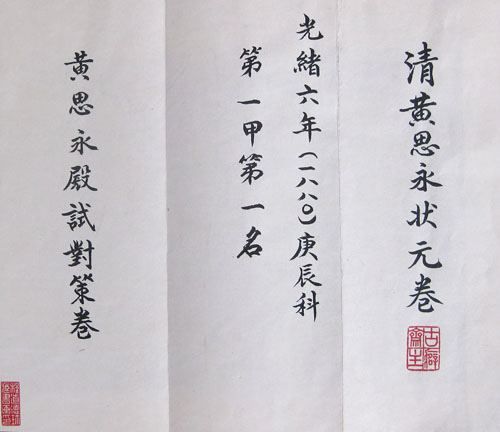 清黃思永狀元卷
光緒六年（一八八〇）庚辰科
第一甲第一名
黃思永殿試對策卷